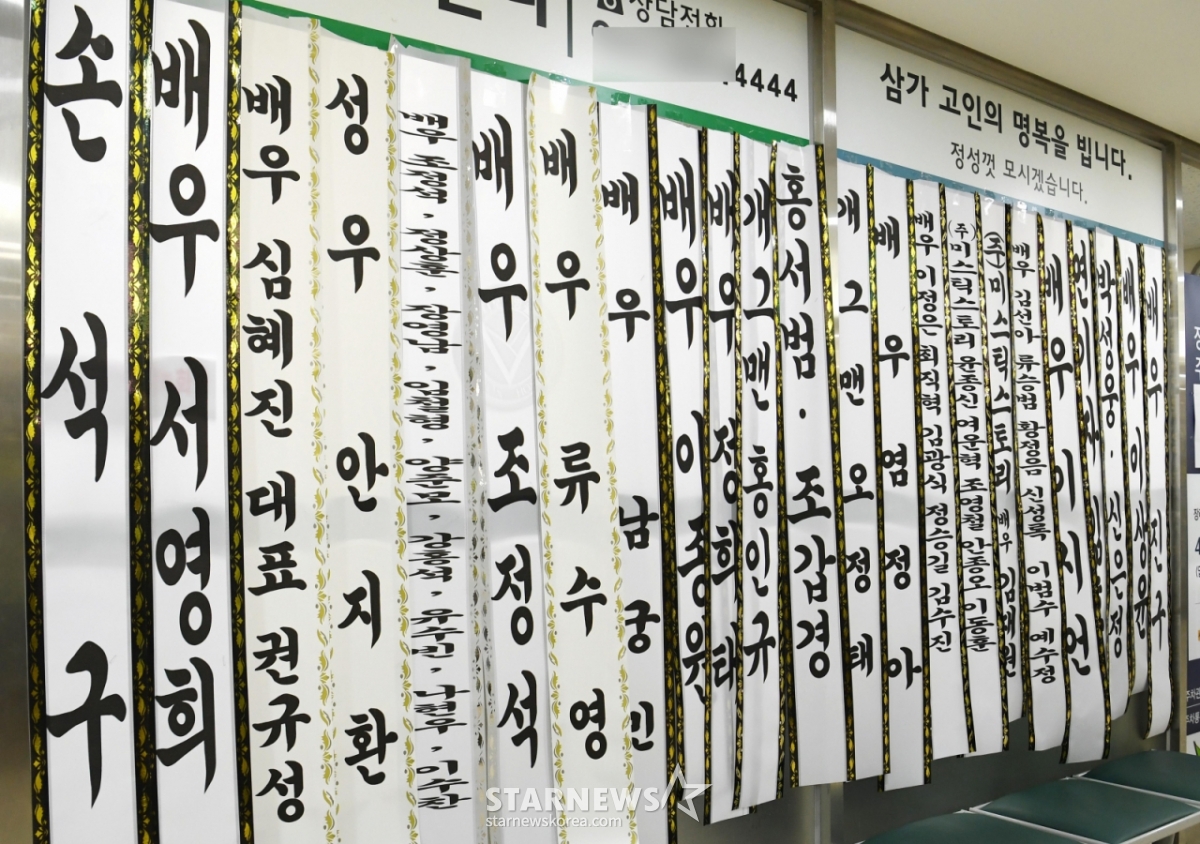 상담전화
4444
삼가 고인의 명복을 빕니다.
정성껏 모시겠습니다.
손석구
배우 서영희
배우 심혜진 대표 권규성
성우 안지환
배우 조정석
배우 조정석
배우 류수영
배우 남궁민
배우 이종원
배우 정희태
개그맨 홍인규
홍서범 · 조갑경
개그맨 오정태
배우 염정아
배우 이정은 최직혁 김광식 정승길 김수진
(주)미스틱스토리 윤종신 여운혁 조영철 안종오 이동훈
(주)미스틱스토리 배우 김태원
배우 김선아 류승범 황정음 신성록 이범수 예수정
배우 이시언
연기자
박성웅 · 신은정
배우 이상윤
배우 진구
STARNEWS
starnewskorea.com